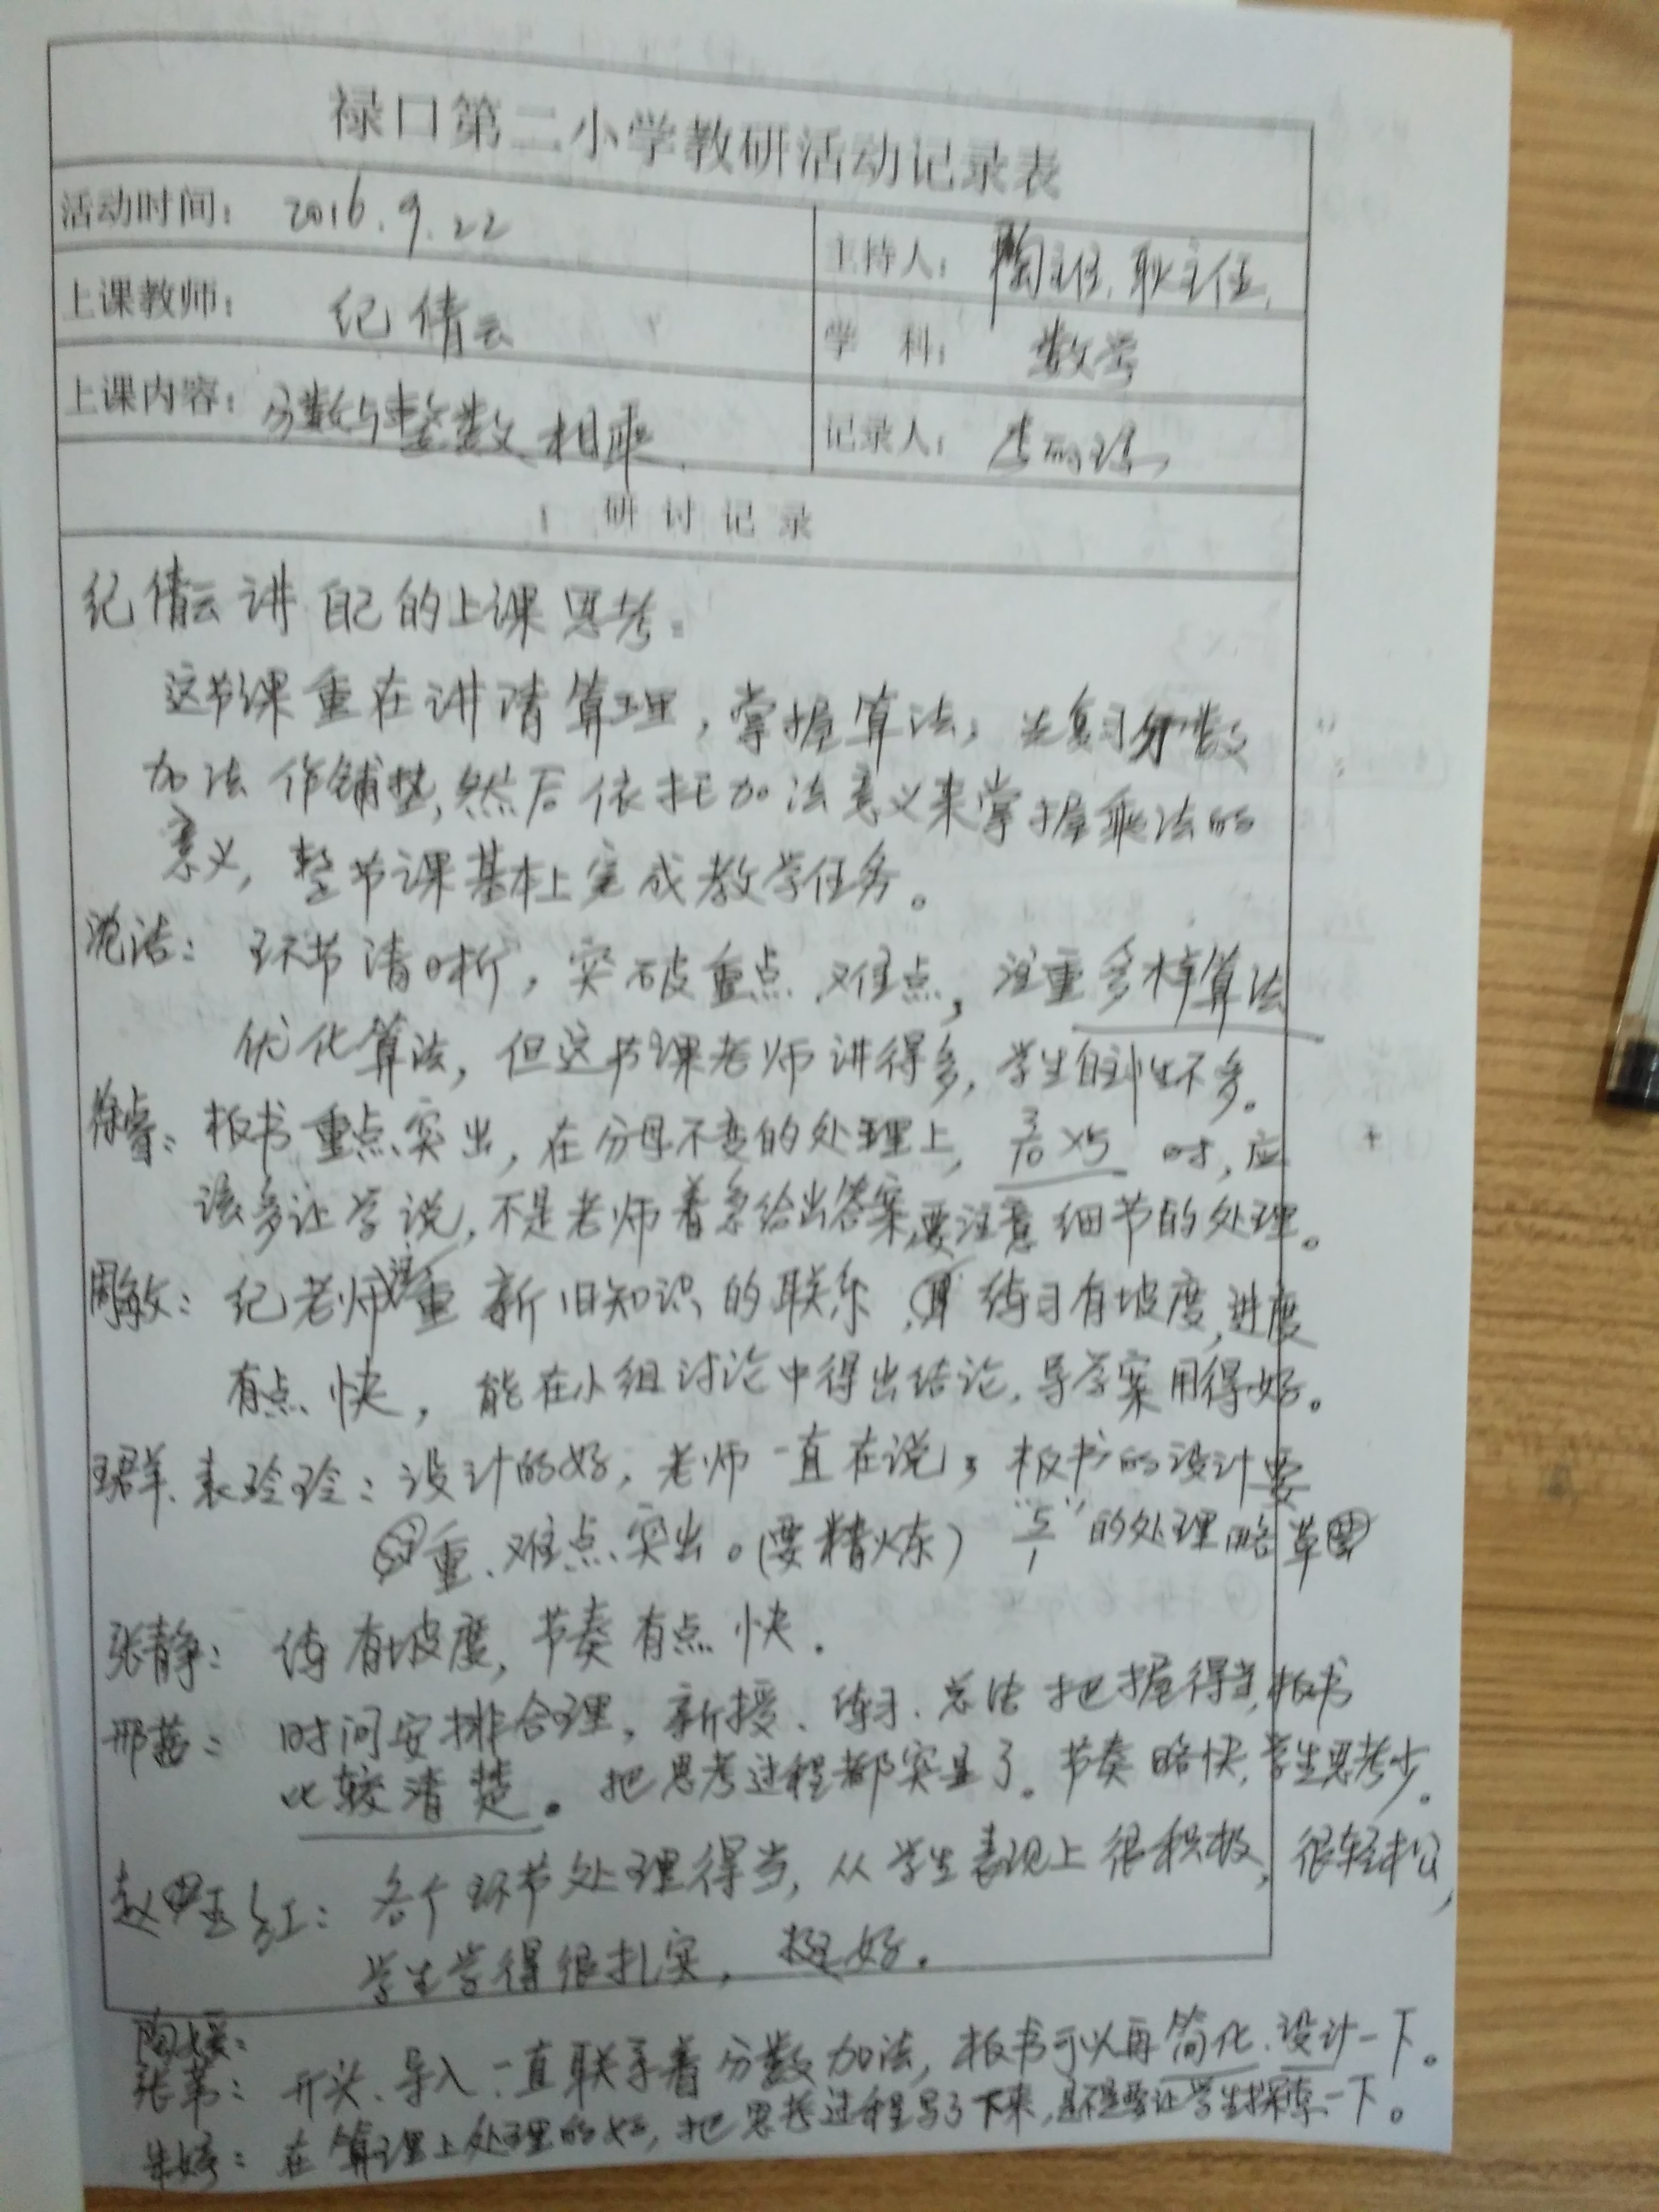 禄口第二小学教研活动记录表
活动时间： 2016.9.22
主持人： 陶主任、耿主任.
上课教师： 纪倩云
学 科： 数学
上课内容： 分数与整数相乘.
记录人：
研 讨 记 录
纪倩云讲自己的上课思考。
这节课重在讲清算理，掌握算法，先复习分数
加法作铺垫,然后依托加法意义来掌握乘法的
意义，整节课基本上完成教学任务。
环节清晰，突破重点、难点，注重多样算法
优化算法，但这节课老师讲得多，学生自主性不多。
徐睿：板书重点突出，在分母不变的处理上，3/10×5 时，应
该多让学说，不是老师着急给出答案,要注意细节的处理。
周敏：纪老师注重新旧知识的联系，练习有坡度,进度
有点快，能在小组讨论中得出结论，导学案用得好。
玲玲：设计的好，老师一直在说，板书的设计要
重、难点突出。（要精炼）"5/1"的处理略草
张静：练有坡度，节奏有点快．
邢茜：时间安排合理，新授、练习、总结把握得当,板书
比较清楚。把思考过程都突显了．节奏略快，学生思考少。
赵玉红：各个环节处理得当，从学生表现上很积极，很轻松，
学生学得很扎实，挺好．
陶媛：
张苇：开头、导入、一直联系着分数加法，板书可以再简化、设计一下。
朱婷：在算理上处理的好，把思考过程写了下来，是不是要让学生探索一下。